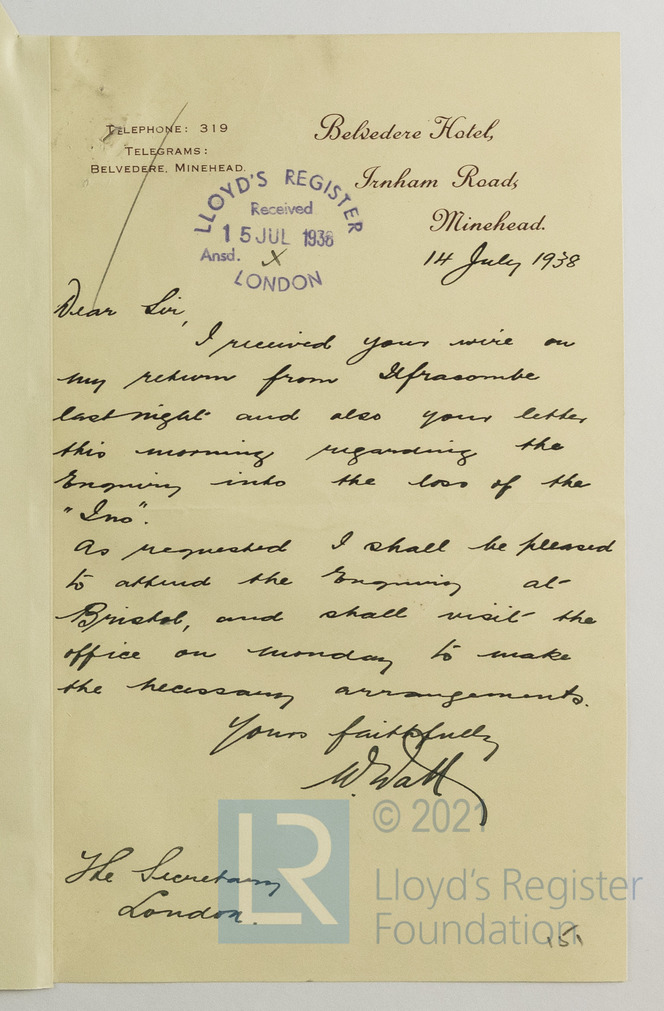 TELEPHONE: 319
TELEGRAMS:
BELVEDERE, MINEHEAD.
Belvedere Hotel,
Irnham Road,
Minehead.
LLOYD'S REGISTER
Received
15 JUL 1938
Ansd. X
LONDON
14 July 1938
Dear Sir,
I received your wire on
my return from Ilfracombe
last night and also your letter
this morning regarding the
Enquiry into the loss of the
"Ino".
As requested I shall be pleased
to attend the Enquiry at
Bristol, and shall visit the
office on Monday to make
the necessary arrangements.
Yours faithfully
W. Watt
The Secretary
London.
151
© 2021
LR
Lloyd's Register
Foundation